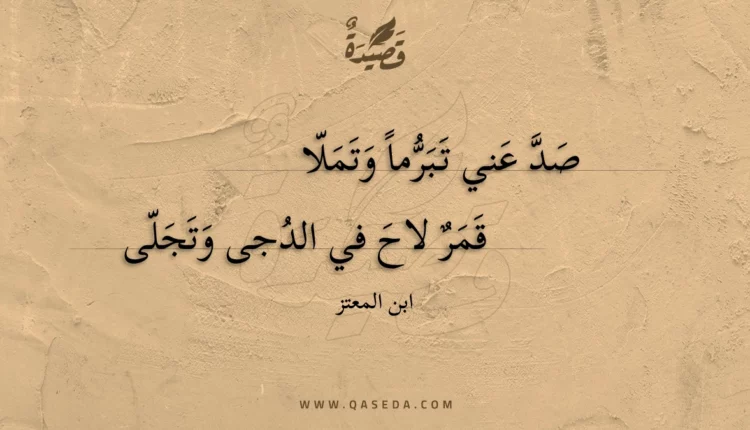 قَصِيْدَةٌ
صَدَّ عَني تَبَرُّماً وَتَمَلّا
قَمَرٌ لاحَ في الدُجى وَتَجَلّى
ابن المعتز
WWW.QASEDA.COM